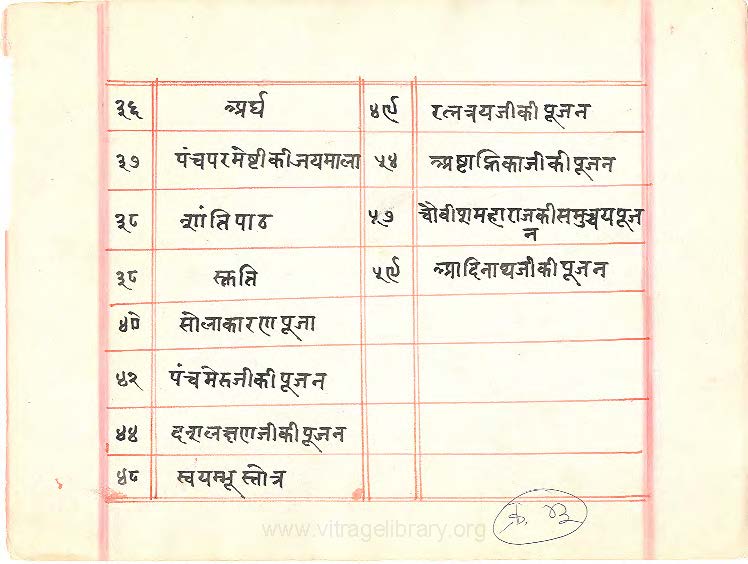 ३६ अर्घ ४९ रत्नत्रयजीकी पूजन
३७ पंचपरमेष्टीकीजयमाला ५४ अष्टाह्निकाजीकी पूजन
३८ शांतिपाठ ५७ चौवीशमहाराजकीसमुच्चयपूज
न
३८ स्तुति ५९ आदिनाथजीकी पूजन
४० सोलाकारण पूजा
४२ पंचमेरुजीकी पूजन
४४ दशलक्षणजीकी पूजन
४८ स्वयम्भू स्तोत्र
www.vitragelibrary.org